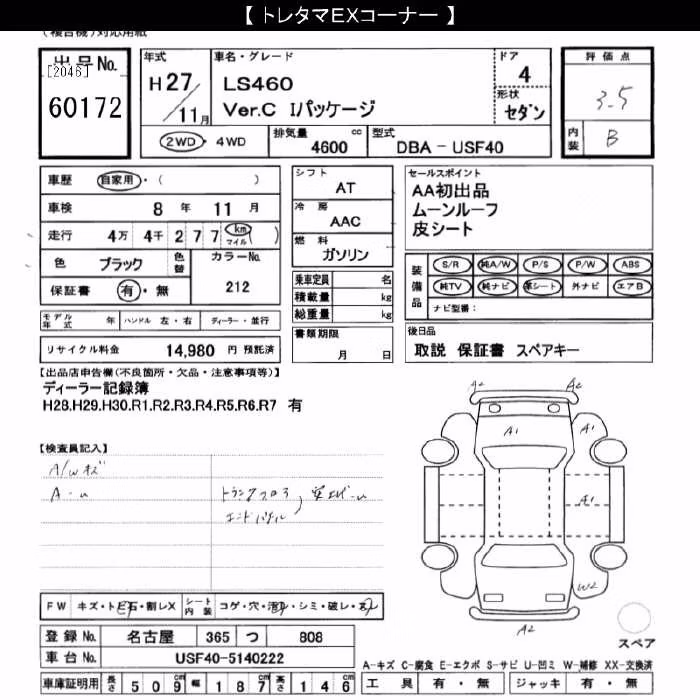 【 トレタマEXコーナー 】
(複合機)対応用紙
出品No.
[2046]
60172
年式
H27/11月
車名・グレード
LS460
Ver.C Iパッケージ
ドア
4
形状
セダン
評価点
3.5
内装
B
2WD・4WD
排気量 4600 cc
型式 DBA - USF40
車歴 自家用・( )
車検 8 年 11 月
走行 4万 4千 2 7 7 km マイル ( )
色 ブラック 色替 カラーNo.
保証書 有・無 212
モデル年式 年 ハンドル 左・右 ディーラー・並行
リサイクル料金 14,980 円 預託済
シフト
AT
冷房
AAC
燃料
ガソリン
乗車定員 名
積載量 kg
総重量 kg
書類期限
月 日
セールスポイント
AA初出品
ムーンルーフ
皮シート
装備品
S/R 純A/W P/S P/W ABS
純TV 純ナビ 革シート 外ナビ エアB
ナビ型番:
後日品
取説 保証書 スペアキー
【出品店申告欄(不良箇所・欠品・注意事項等)】
ディーラー記録簿
H28.H29.H30.R1.R2.R3.R4.R5.R6.R7 有
【検査員記入】
A/Wキズ
A・u
トランクフロア
エンドパネル
A2 A2
A1 A1
A1
W2
A2
スペア
FW キズ・トビ石・割レX シート内装 コゲ・穴・汚レ・シミ・破レ・スレ
登録No. 名古屋 365 つ 808
車台No. USF40-5140222
車庫証明用 長さ 5 0 9 cm 幅 1 8 7 cm 高さ 1 4 6 cm
A-キズ C-腐食 E-エクボ S-サビ U-凹ミ W-補修 XX-交換済
工具 有・無 ジャッキ 有・無